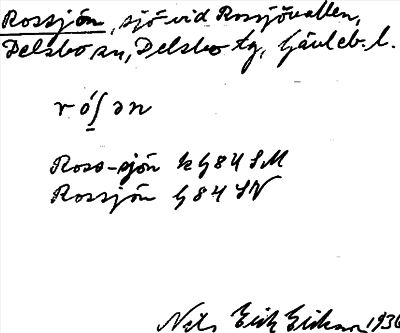 Rossjön, sjö vid Rossjövallen,
Delsbo sn, Delsbo tg, Gävleb. l.
r ó ʃ ə n
Ross-sjön k G84 SM
Rossjön G 84 SV
Nels Erik Eriksson 1936